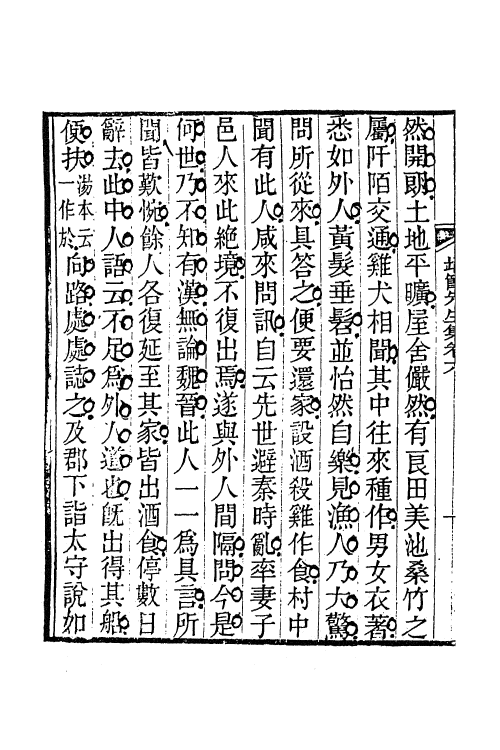 然開朗土地平曠屋舍儼然有良田美池桑竹之
屬阡陌交通雞犬相聞其中往來種作男女衣著
悉如外人黃髮垂髫並怡然自樂見漁人乃大驚
問所從來具答之便要還家設酒殺雞作食村中
聞有此人咸來問訊自云先世避秦時亂率妻子
邑人來此絶境不復出焉遂與外人間隔問今是
何世乃不知有漢無論魏晉此人一一爲具言所
聞皆歎惋餘人各復延至其家皆出酒食停數日
辭去此中人語云不足爲外人道也旣出得其船
便扶湯本云一作於向路處處誌之及郡下詣太守說如